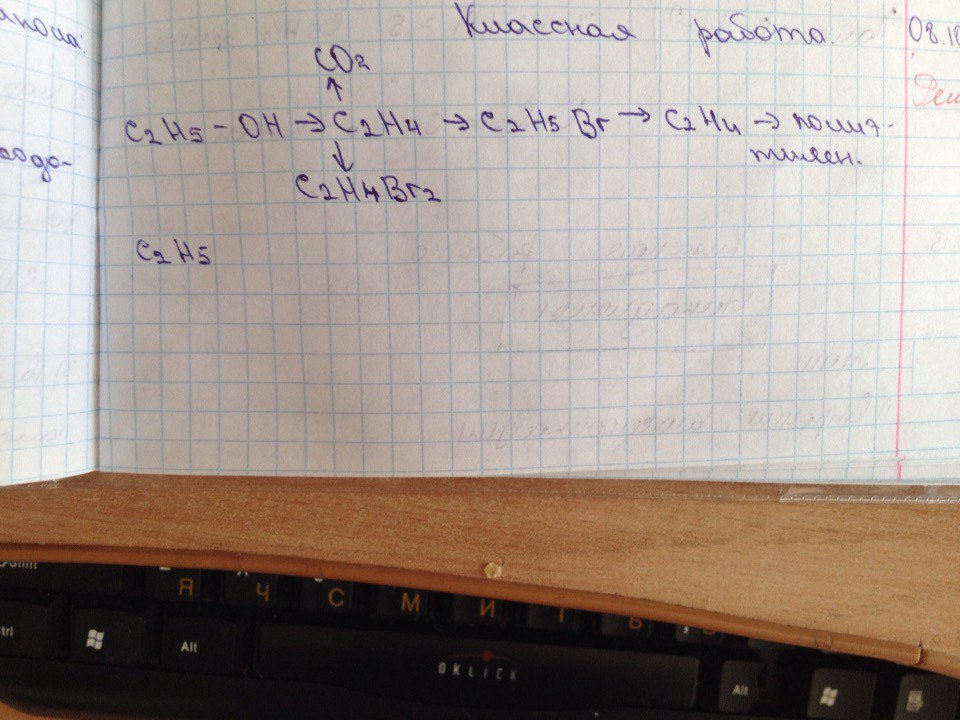 Классная работа.
08.10
CO2
↑
C2H5 - OH → C2H4 → C2H5Br → C2H4 → полиэ-
тилен.
↓
C2H4Br2
C2H5
Я Ч С М И Т Ь
Alt
OKLICK
Alt